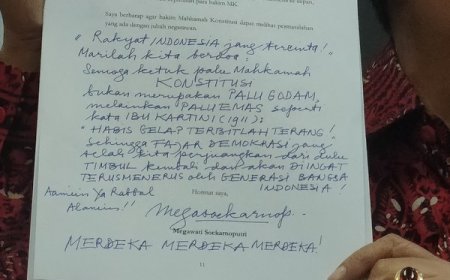 para hakim MK.
Saya berharap agar hakim Mahkamah Konstitusi dapat melihat permasalahan
yang ada dengan
negarawan.
" Rakyat INDONESIA yang tercinta!
Marilah kita berdoa:
Semoga ketuk palu Mahkamah
KONSTITUSI
bukan merupakan PALU GODAM,
melainkan PALU EMAS seperti
kata IBU KARTINI (1911):
" HABIS GELAP TERBITLAH TERANG!
Sehingga FAJAR DEMOKRASI yang
telah kita perjuangkan dari dulu
TIMBUL kembali dan akan DIINGAT
TERUS MENERUS oleh GENERASI BANGSA
INDONESIA!
Aamiin Ya Rabbal
Alamin!!
Hormat saya,
Megawati Soekarnoputri
MERDEKA MERDEKA MERDEKA!
11